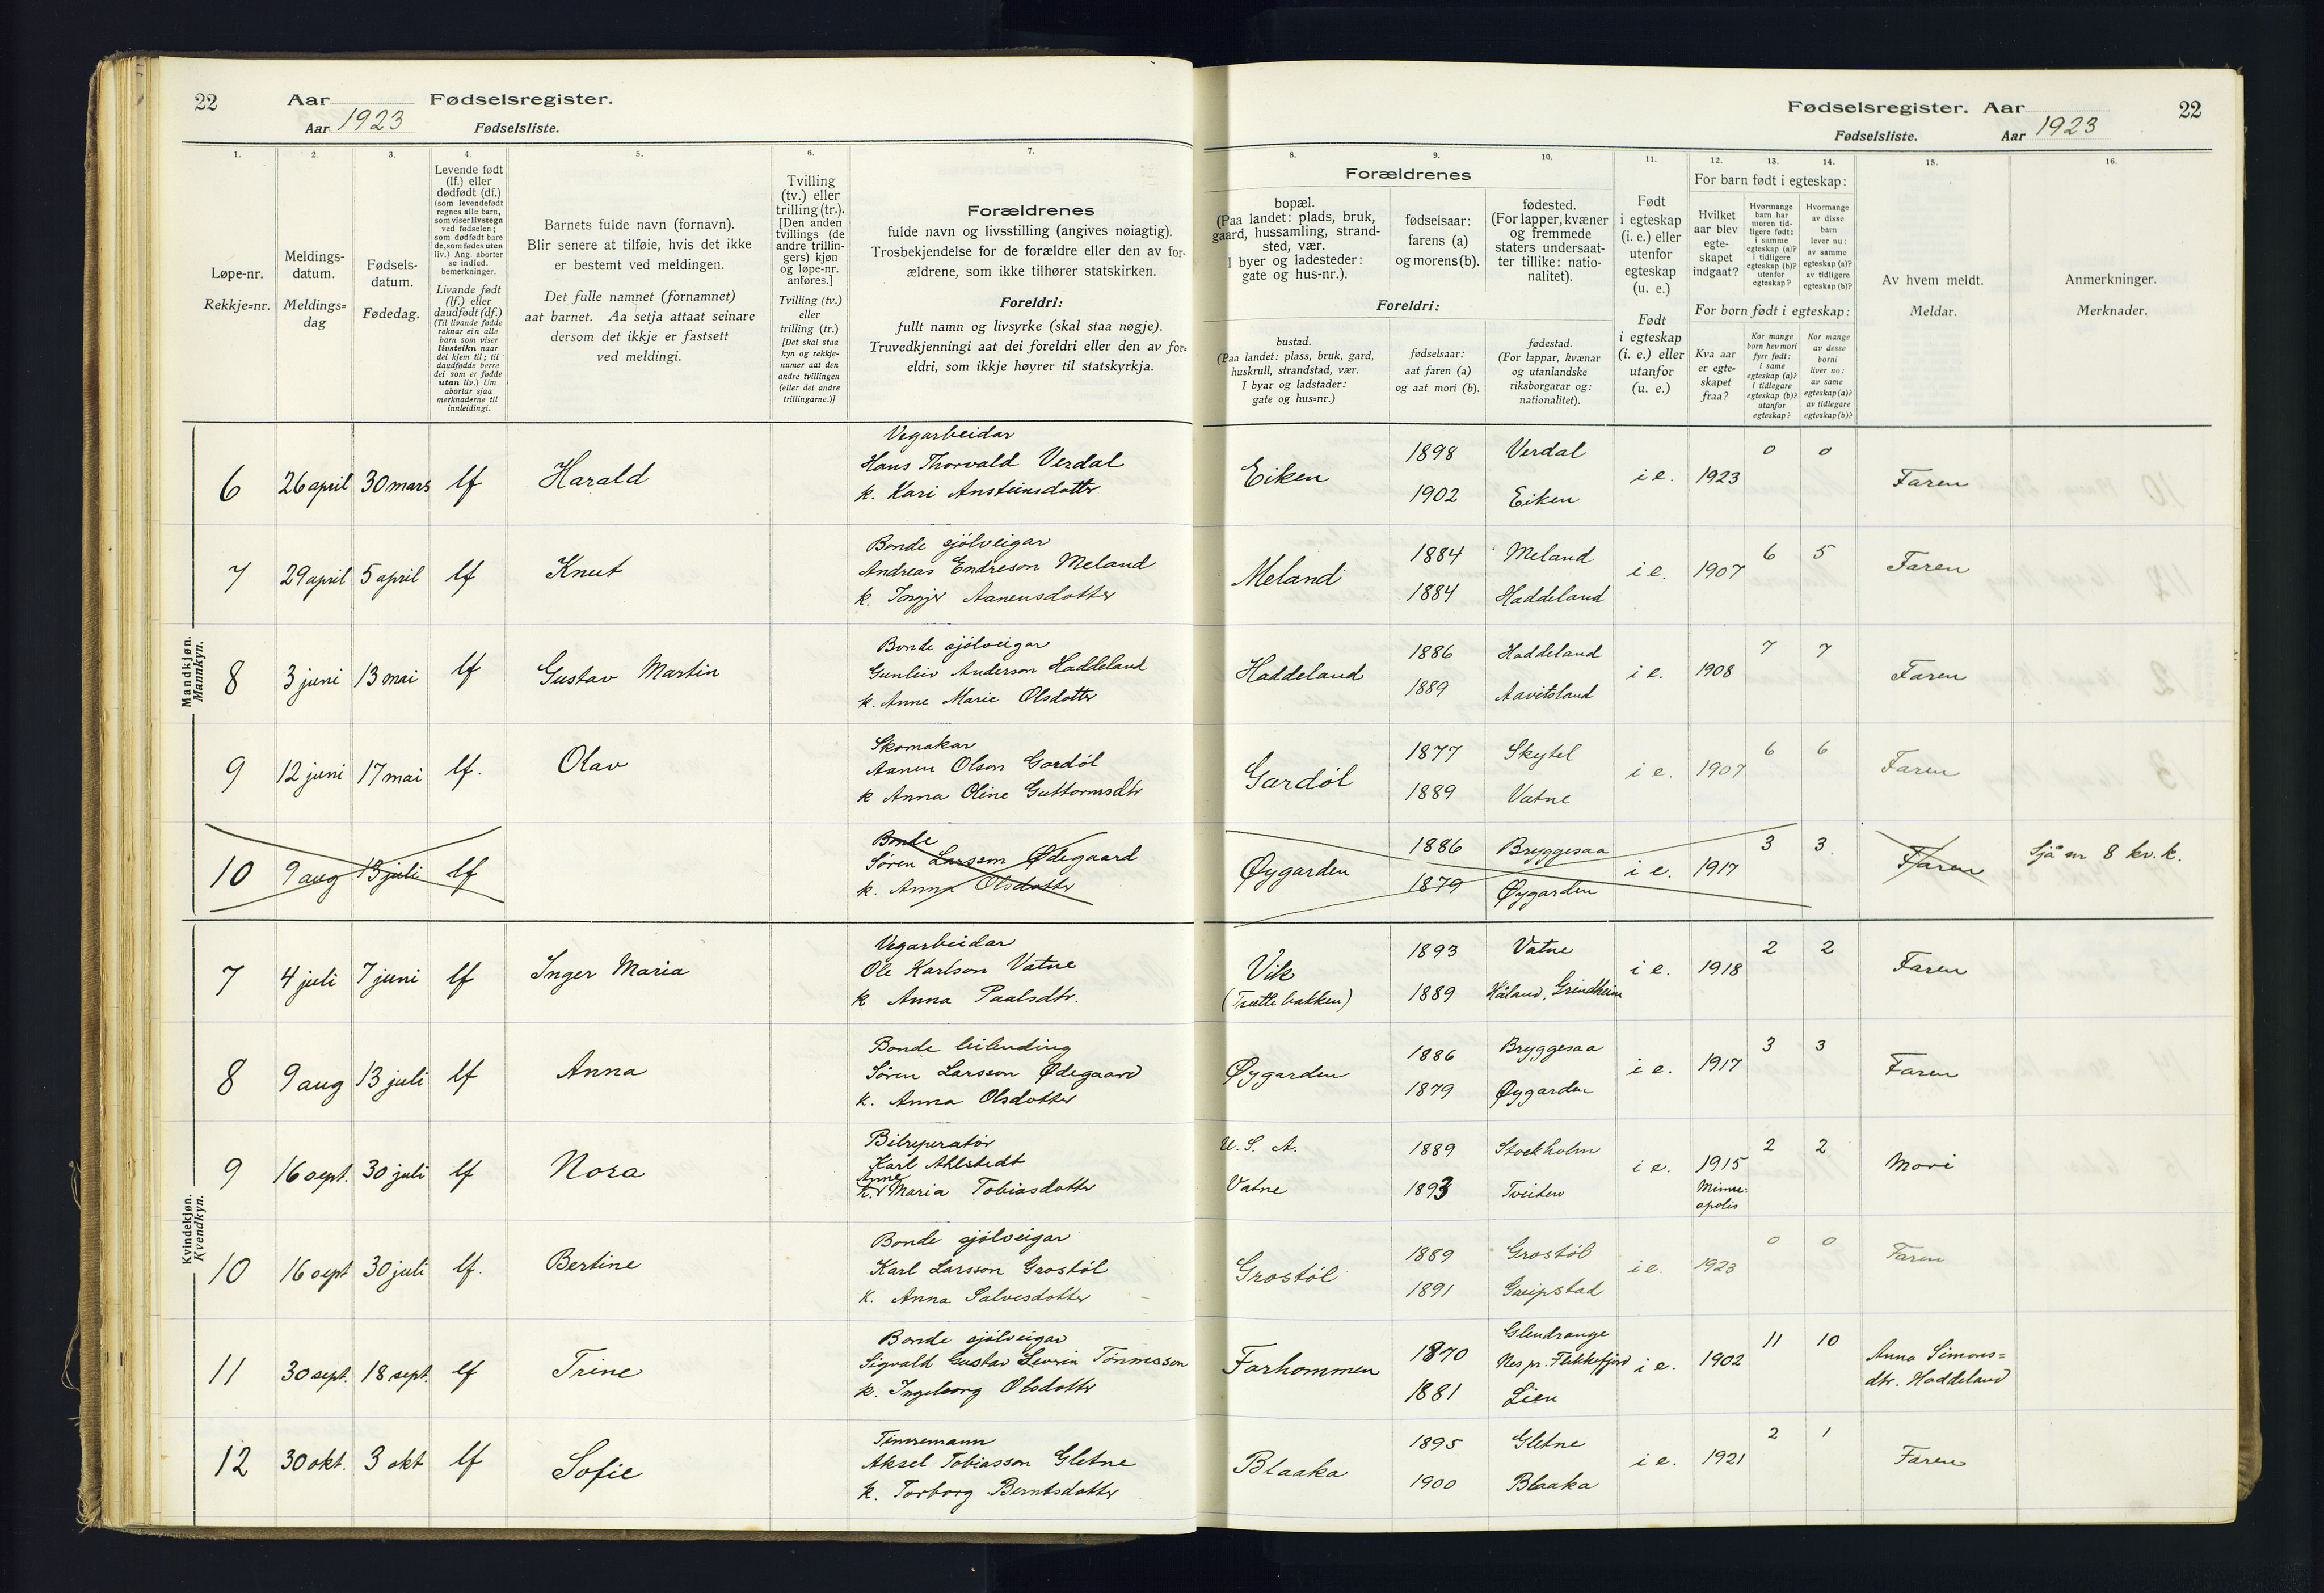 22
Aar
Fødselsregister.
Aar 1923
Fødselsliste.
1.
2.
3.
4.
5.
6.
7.
Løpe-nr.
Rekkje=nr.
Meldings-
datum.
Meldings=
dag
Fødsels-
datum.
Fødedag.
Levende født
(lf.) eller
dødfødt (df.)
(som levendefødt
regnes alle barn,
som viser livstegn
ved fødselen;
som dødfødt bare
de, som fødes uten
liv.) Ang. aborter
se indled.
bemerkninger.
Livande født
(lf.) eller
daudfødt (df.)
(Til livande fødde
reknar ein alle
barn som viser
livsteikn naar
dei kjem til; til
daudfødde berre
dei som er fødde
utan liv.) Um
abortar sjaa
merknaderne til
innleidingi.
Barnets fulde navn (fornavn).
Blir senere at tilføie, hvis det ikke
er bestemt ved meldingen.
Det fulle namnet (fornamnet)
aat barnet. Aa setja attaat seinare
dersom det ikkje er fastsett
ved meldingi.
Tvilling
(tv.) eller
trilling (tr.).
[Den anden
tvillings (de
andre trillin-
gers) kjøn
og løpe-nr.
anføres.]
Tvilling (tv.)
eller
trilling (tr.)
[Det skal staa
kyn og rekkje-
numer aat den
andre tvillingen
(eller dei andre
trillingarne.)]
Forældrenes
fulde navn og livsstilling (angives nøiagtig).
Trosbekjendelse for de forældre eller den av for-
ældrene, som ikke tilhører statskirken.
Foreldri:
fullt namn og livsyrke (skal staa nøgje).
Truvedkjenningi aat dei foreldri eller den av for=
eldri, som ikkje høyrer til statskyrkja.
Fødselsregister. Aar
22
Fødselsliste.
Aar 1923
8.
9.
10.
11.
12.
13.
14.
15.
16.
Forældrenes
bopæl.
(Paa landet: plads, bruk,
gaard, hussamling, strand-
sted, vær.
I byer og ladesteder:
gate og hus-nr.).
fødselsaar:
farens (a)
og morens (b).
fødested.
(For lapper, kvæner
og fremmede
staters undersaat-
ter tillike: natio-
nalitet).
Foreldri:
bustad.
(Paa landet: plass, bruk, gard,
huskrull, strandstad, vær.
I byar og ladstader:
gate og hus=nr.)
fødselsaar:
aat faren (a)
og aat mori (b).
fødestad.
(For lappar, kvænar
og utanlandske
riksborgarar og:
nationalitet).
Født
i egteskap
(i. e.) eller
utenfor
egteskap
(u. e.)
Født
i egteskap
(i. e.) eller
utanfor
(u. e.)
For barn født i egteskap:
Hvilket
aar blev
egte-
skapet
indgaat?
Hvormange
barn har
moren tid-
ligere født:
i samme
egteskap (a)?
i tidligere
egteskap (b)?
utenfor
egteskap?
Hvormange
av disse
barn
lever nu:
av samme
egteskap (a)?
av tidligere
egteskap (b)?
For born født i egteskap:
Kva aar
er egte=
skapet
fraa?
Kor mange
born hev mori
fyrr født:
i same
egteskap (a)?
i tidlegare
egteskap (b)?
utanfor
egteskap?
Kor mange
av desse
borni
liver no:
av same
egteskap (a)?
av tidlegare
egteskap (b)?
Av hvem meldt.
Meldar.
Anmerkninger.
Merknader.
Mandkjøn.
Mannkyn.
Vegarbeidar
6 26 april 30 mars lf Harald Hans Thorvald Verdal
k. Kari Ansteinsdotter
Eiken 1898 Verdal i e. 1923 0 0 Faren
1902 Eiken
Bonde sjölveigar
7 29 april 5 april lf Knut Andreas Endreson Meland
k. Ingjer Aanensdotter
Meland 1884 Meland i e. 1907 6 5 Faren
1884 Haddeland
Bonde sjölveigar
8 3 juni 13 mai lf Gustav Martin Gunleiv Anderson Haddeland
k. Anne Marie Olsdotter
Haddeland 1886 Haddeland i e. 1908 7 7 Faren
1889 Aavitsland
Skomakar
9 12 juni 17 mai lf. Olav Aanen Olson Gardöl
k Anna Oline Guttormsdtr
Gardöl 1877 Skytel i e. 1907 6 6 Faren
1889 Vatne
Bonde
10 9 aug 13 juli lf Søren Larsson Ødegaard
k. Anna Olsdotter
Øygarden 1886 Bryggesaa i e. 1917 3 3 Faren Sjå nr 8 kv.k.
1879 Øygarden
Kvindekjøn.
Kvendkyn.
Vegarbeidar
7 4 juli 7 juni lf Inger Maria Ole Karlson Vatne
k Anna Paalsdtr.
Vik 1893 Vatne i e. 1918 2 2 Faren
(Trættebakken) 1889 Håland, Grindheim
Bonde leilending
8 9 aug 13 juli lf Anna Søren Larsson Ødegaard
k. Anna Olsdotter
Øygarden 1886 Bryggesaa i e. 1917 3 3 Faren
1879 Øygarden
Bilreperatör
9 16 sept. 30 juli lf Nora Karl Ahlstedt
Anne
k. Maria Tobiasdotter
U. S. A. 1889 Stockholm i e. 1915 2 2 Mori
Vatne 1893 Tveiten Minne=
apolis
Bonde sjölveigar
10 16 sept 30 juli lf. Bertine Karl Larsson Grostöl
k. Anna Salvesdotter
Grostöl 1889 Grostöl i e. 1923 0 0 Faren
1891 Greipstad
Bonde sjölveigar
11 30 sept. 18 sept. lf Trine Sigvald Gustav Severin Tönnesson
k. Ingeborg Olsdotter
Farhommen 1870 Glendrange
Nes pr. Flekkefjord i e. 1902 11 10 Anna Simons=
dtr. Haddeland
1881 Lien
Timremann
12 30 okt. 3 okt lf Sofie Aksel Tobiasson Gletne
k. Torborg Berntsdotter
Blaaka 1895 Gletne i e. 1921 2 1 Faren
1900 Blaaka